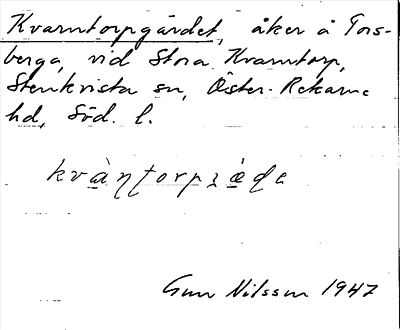 Kvarntorpgärdet, åker å Tors-
berga, vid Stora Kvarntorp,
Stenkvista sn, Öster-Rekarne
hd, Söd. l.
Gun Nilsson 1947